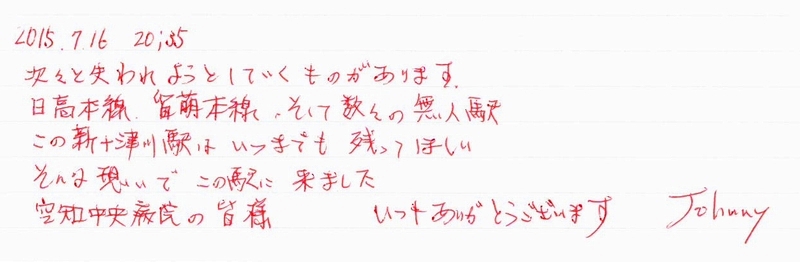 2015.7.16 20:35
次々と失われようとしていくものがあります.
日高本線、留萌本線、そして数々の無人駅
この新十津川駅はいつまでも残ってほしい
そんな想いでこの駅に来ました
空知中央病院の皆様 いつもありがとうございます Johnny